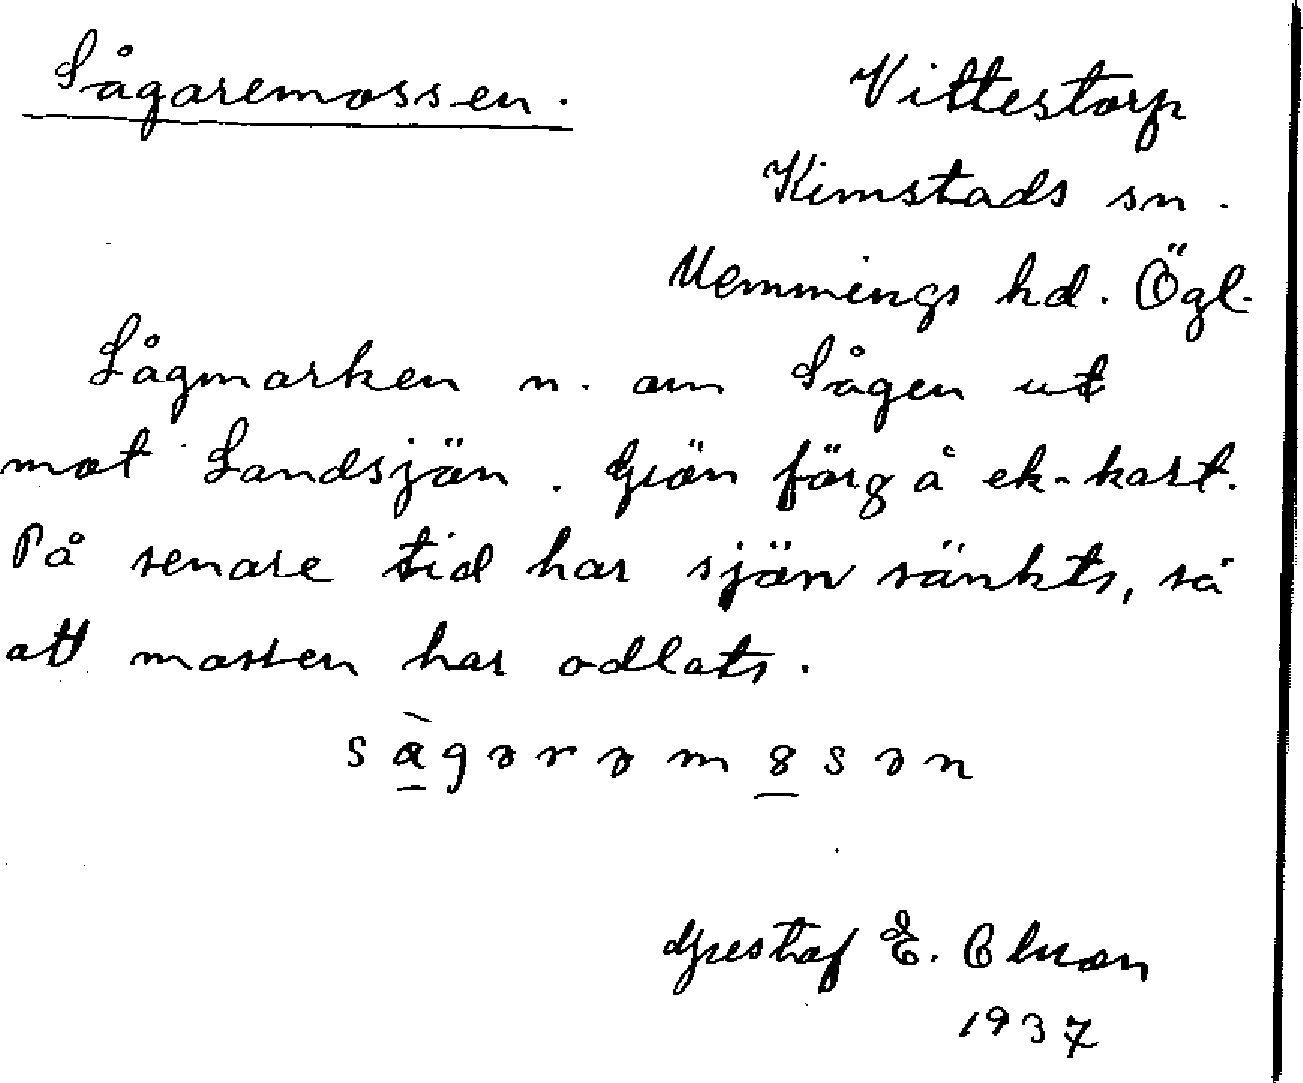 Sågaremossen.
Vittestorp
Kimstads sn.
Memmings hd. Ögl.
Sågmarken n. om Sågen ut
mot Landsjön. Grön färg å ek-kart.
På senare tid har sjön sänkts, så
att mossen har odlats.
sàgərəm8sən
Gustaf E. Olsson
1937